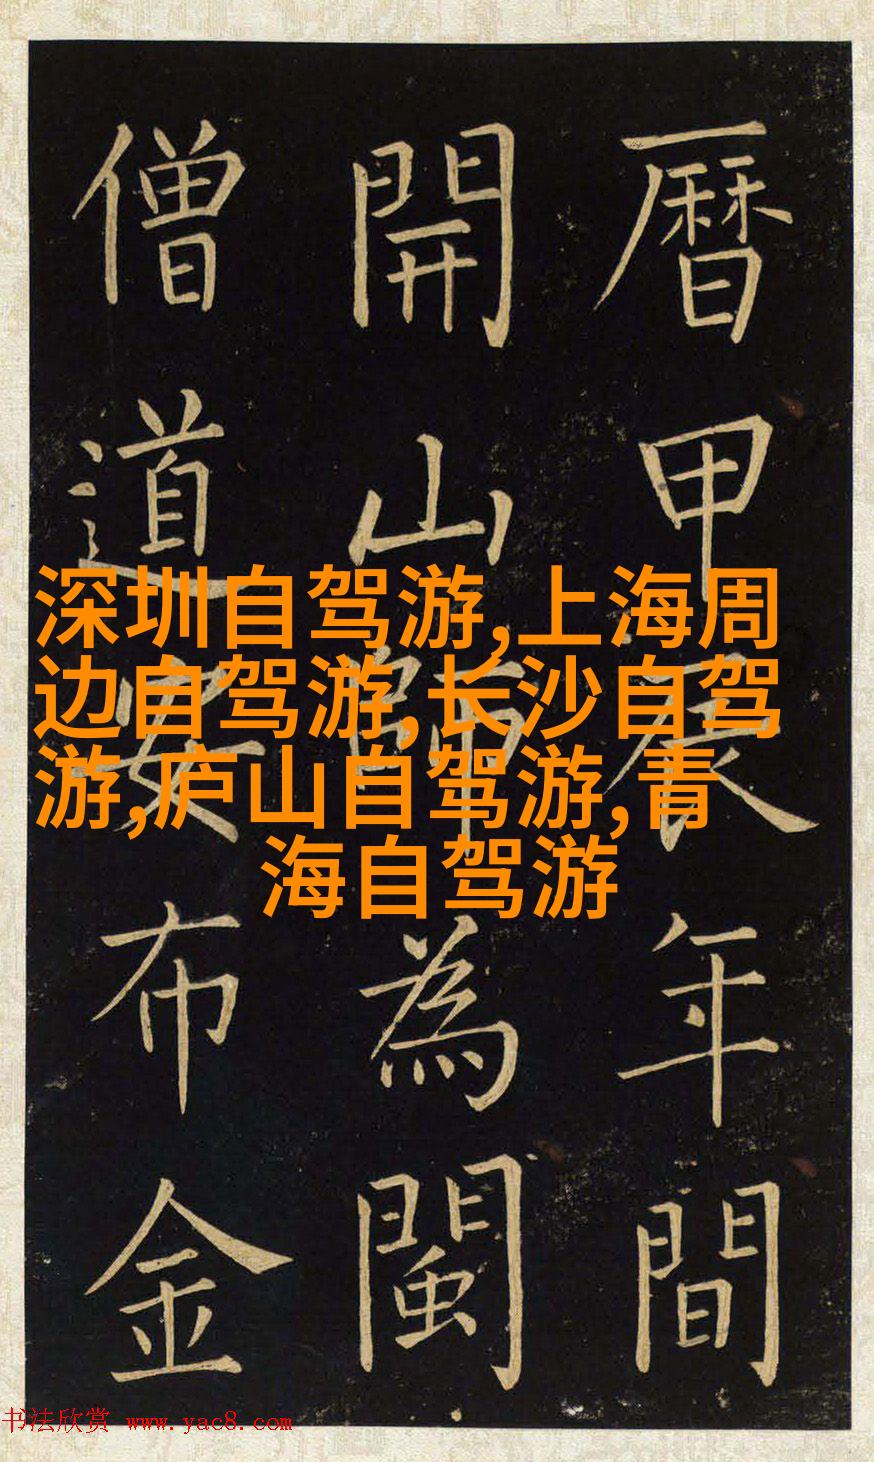 曆甲辰年間
開山師為閩
僧道安布金
深圳自驾游,上海周
边自驾游,长沙自驾
游,庐山自驾游,青
海自驾游
书法欣赏 www.yac8.com